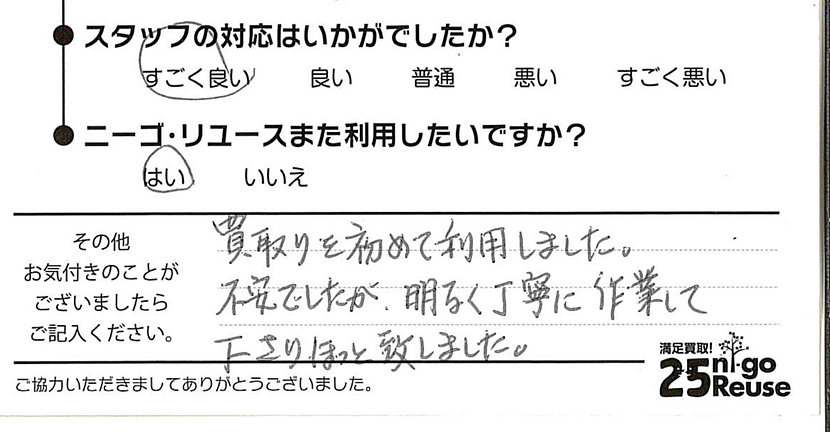 スタッフの対応はいかがでしたか?
すごく良い 良い 普通 悪い すごく悪い
ニーゴ・リユースまた利用したいですか?
はい いいえ
その他
お気付きのことが
ございましたら
ご記入ください。
買取りを初めて利用しました。
不安でしたが、明るく丁寧に作業して
下さりほっと致しました。
ご協力いただきましてありがとうございました。
満足買取!
25 ni-go
Reuse